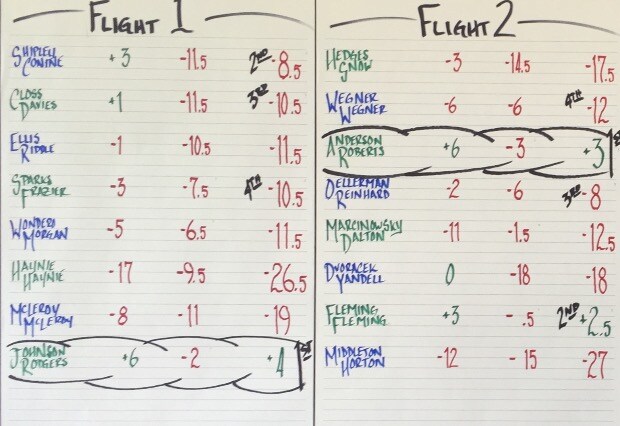 FLIGHT 1
SHIPLEY
CONINE +3 -11.5 2ND -8.5
CLOSS
DAVIES +1 -11.5 3RD -10.5
ELLIS
RIDDLE -1 -10.5 -11.5
SPARKS
FRAZIER -3 -7.5 4TH -10.5
WONDERS
MORGAN -5 -6.5 -11.5
HAYNIE
HAYNIE -17 -9.5 -26.5
MCLEROY
MCLEROY -8 -11 -19
JOHNSON
RODGERS +6 -2 +4 1ST
FLIGHT 2
HEDGES
GNOW -3 -14.5 -17.5
WEGNER
WEGNER -6 -6 4TH -12
ANDERSON
ROBERTS +6 -3 +3
DELLERMAN
REINHARD -2 -6 3RD -8
MARCINOWSKY
DALTON -11 -1.5 -12.5
DVORACEK
YANDELL 0 -18 -18
FLEMING
FLEMING +3 -.5 2ND +2.5
MIDDLETON
HORTON -12 -15 -27